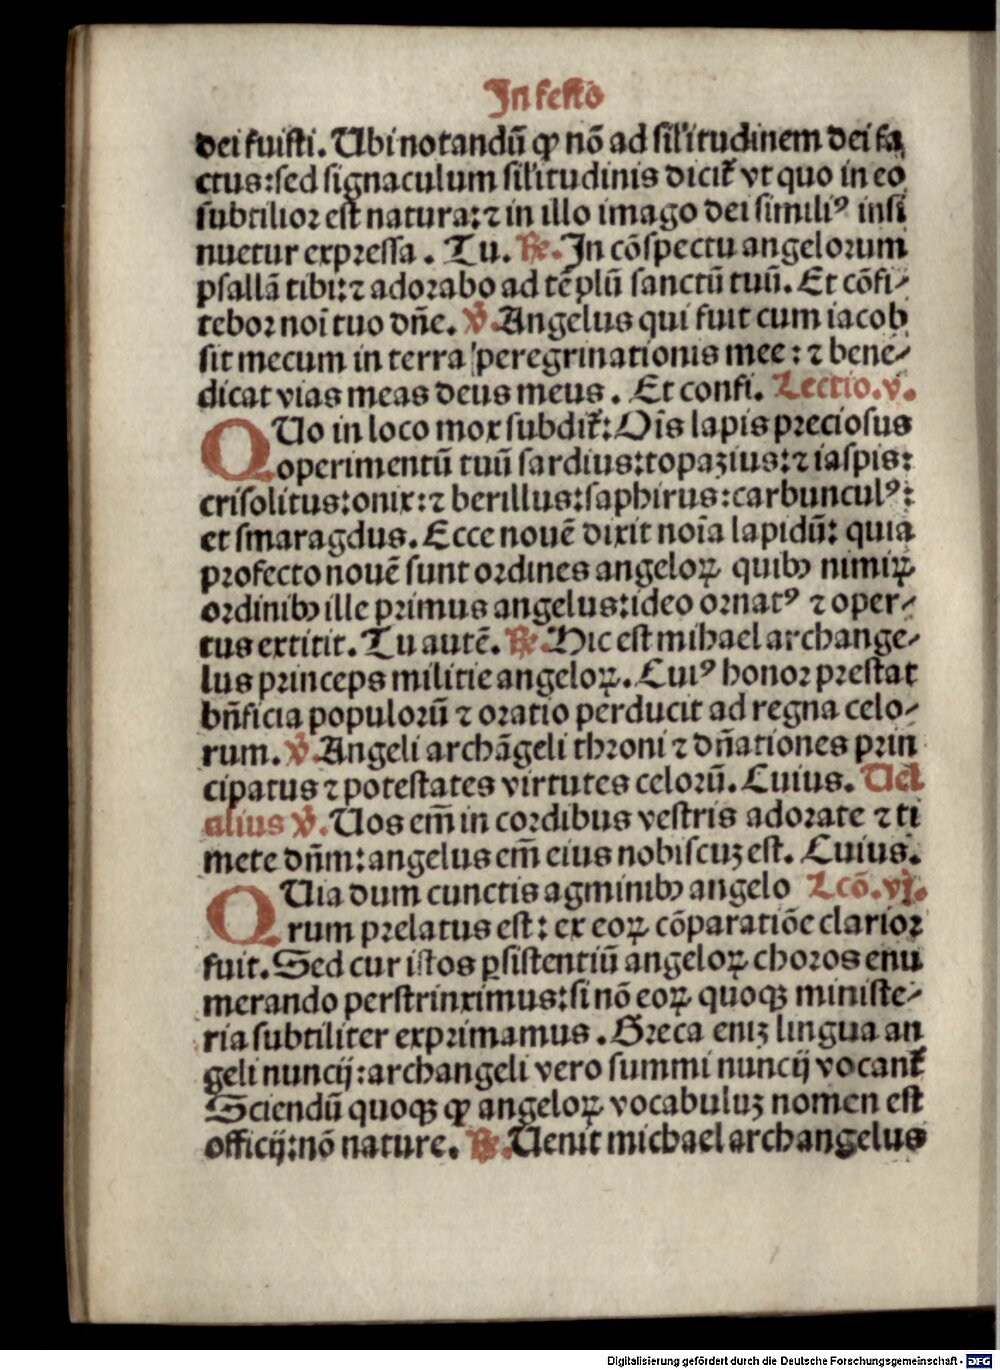 In festo
dei fuisti. Ubi notandū ꝙ nō ad sil'itudinem dei fa
ctus: sed signaculum sil'itudinis dicit̃ vt quo in eo
subtilior est natura: ⁊ in illo imago dei similiꝰ insi
nuetur expressa. Tu. ℟. In cōspectu angelorum
psallā tibi: ⁊ adorabo ad tēplū sanctū tuū. Et cōfi-
tebor noī tuo dn̄e. ℣. Angelus qui fuit cum iacob
sit mecum in terra peregrinationis mee: ⁊ bene-
dicat vias meas deus meus. Et confi. Lectio.v.
QUo in loco mox subdit̃: Oīs lapis preciosus
operimentū tuū sardius: topazius: ⁊ iaspis:
crisolitus: onix: ⁊ berillus: saphirus: carbunculꝰ:
et smaragdus. Ecce nouē dixit noīa lapidū: quia
profecto nouē sunt ordines angeloꝝ quibꝫ nimiꝝ
ordinibꝫ ille primus angelus: ideo ornatꝰ ⁊ oper-
tus extitit. Tu autē. ℟. Hic est mihael archange-
lus princeps militie angeloꝝ. Cuiꝰ honor prestat
bn̄ficia populorū ⁊ oratio perducit ad regna celo-
rum. ℣. Angeli archāgeli throni ⁊ dn̄ationes prin
cipatus ⁊ potestates virtutes celorū. Cuius. Uel
alius ℣. Uos em̄ in cordibus vestris adorate ⁊ ti
mete dn̄m: angelus em̄ eius nobiscuꝫ est. Cuius.
QUia dum cunctis agminibꝫ angelo Lcō.vj.
rum prelatus est: ex eoꝝ cōparatiōe clarior
fuit. Sed cur istos ꝑsistentiū angeloꝝ choros enu
merando perstrinximus: si nō eoꝝ quoqꝫ ministe-
ria subtiliter exprimamus. Greca eniꝫ lingua an
geli nuncij: archangeli vero summi nuncij vocant̃
Sciendū quoqꝫ ꝙ angeloꝝ vocabuluꝫ nomen est
officij: nō nature. ℟. Uenit michael archangelus
Digitalisierung gefördert durch die Deutsche Forschungsgemeinschaft - DFG